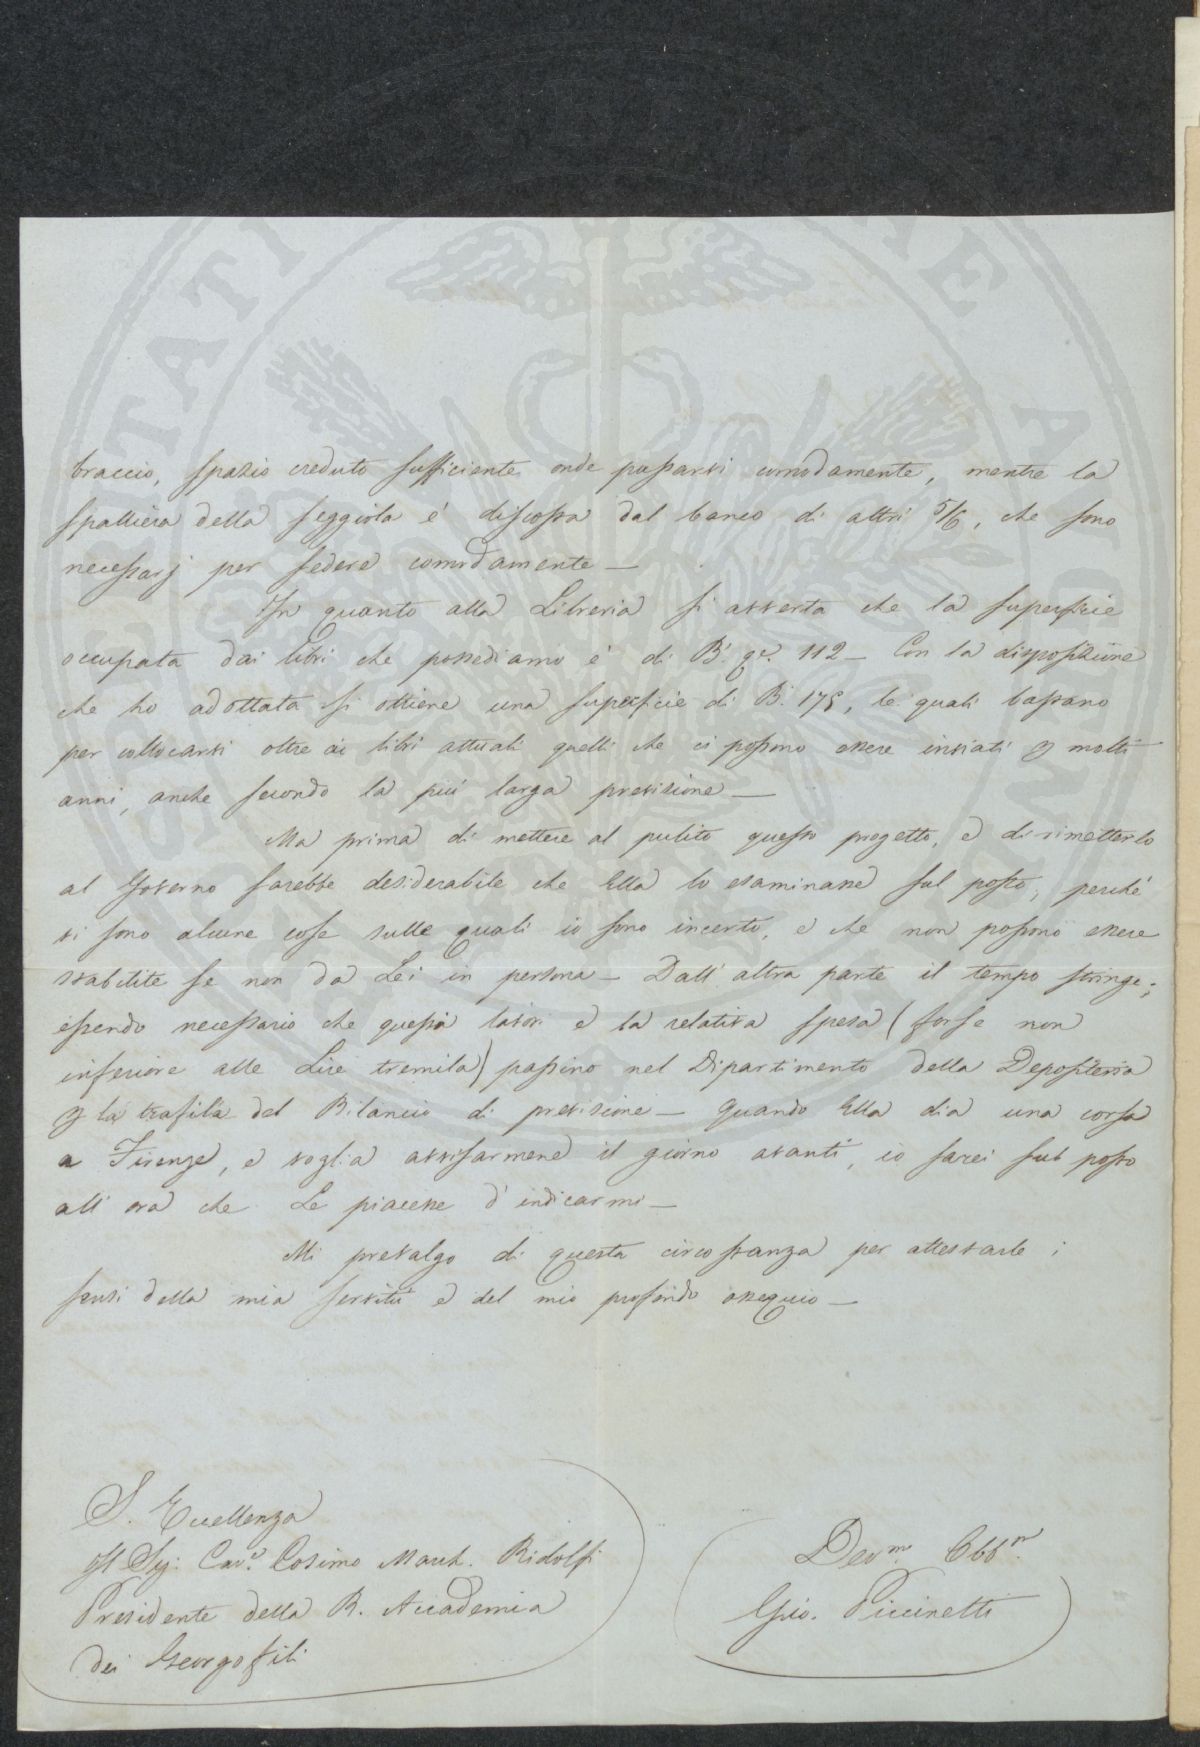 braccio, spazio creduto sufficiente onde passarvi comodamente, mentre la
spalliera della seggiola é discosta dal banco di altri 5/6, che sono
necessarj per sedere comodamente —
In quanto alla Libreria si avverta che la superficie
occupata dai libri che possediamo é di B. qe. 112 — Con la disposizione
che ho adottata si ottiene una superficie di B. 175, le quali bastano
per collocarvi oltre ai libri attuali quelli che ci possono essere inviati p molti
anni, anche secondo la piú larga previsione —
Ma prima di mettere al pulito questo progetto, e di rimetterlo
al Governo sarebbe desiderabile che Ella lo esaminasse sul posto, perché
vi sono alcune cose sulle quali io sono incerto, e che non possono essere
stabilite se non da Lei in persona — Dall' altra parte il tempo stringe;
essendo necessario che questi lavori e la relativa spesa (forse non
inferiore alle Lire tremila) passino nel Dipartimento della Depositeria
p la trafila del Bilancio di previsione — Quando Ella dia una corsa
a Firenze, e voglia avvisarmene il giorno avanti, io sarei sul posto
all' ora che Le piacesse d' indicarmi —
Mi prevalgo di questa circostanza per attestarle i
sensi della mia servitú e del mio profondo ossequio —
S. Eccellenza
Il Sig: Cav. Cosimo March. Ridolfi
Presidente della R. Accademia
dei Georgofili
Devmo. Obbmo.
Gio. Piccinetti